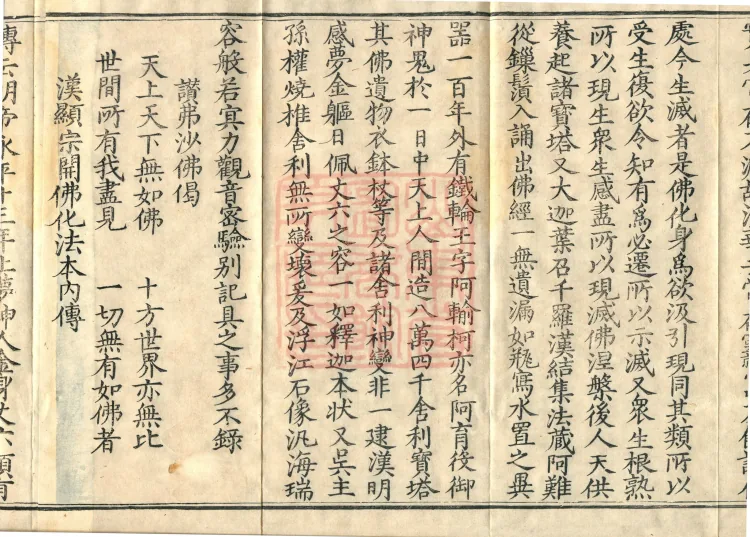 處今生滅者是佛化身爲欲汲引現同其類所以
受生復欲令知有爲必遷所以示滅又衆生根熟
所以現生衆生感盡所以現滅佛涅槃後人天供
養起諸寶塔又大迦葉召千羅漢結集法藏阿難
從鏁鬚入誦出佛經一無遺漏如瓶寫水置之異
器一百年外有鐵輪王字阿輸柯亦名阿育役御
神鬼於一日中天上人間造八萬四千舍利寶塔
其佛遺物衣鉢杖等及諸舍利神變非一逮漢明
感夢金軀日佩丈六之容一如釋迦本狀又吳主
孫權燒椎舍利無所變壞爰及浮江石像汎海瑞
容般若冥力觀音密驗別記具之事多不錄
讃弗沙佛偈
天上天下無如佛　十方世界亦無比
世間所有我盡見　一切無有如佛者
漢顯宗開佛化法本內傳
傳云明帝永平十三年上夢神人金身丈六項有